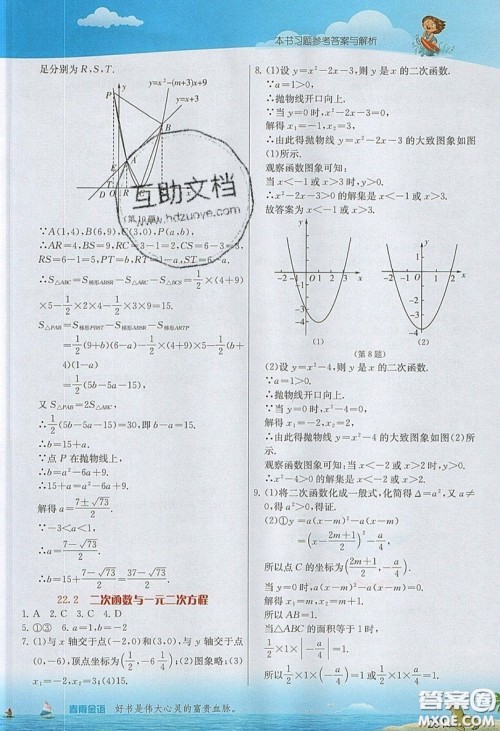 本书习题参考答案与解析
足分别为 R,S,T.
y=x²-(m+3)x+9
y=x+3
(第10题)
∵A(1,4),B(6,9),C(3,0),P(a,b),
∴AR=4,BS=9,RC=3-1=2,CS=6-3=3,
RS=6-1=5,PT=b,RT=1-a,ST=6-a.
∴S△ABC=S梯形ABSR-S△ARC-S△BCS=1/2×(4+9)
×5-1/2×2×4-1/2×3×9=15.
S△PAB=S梯形PBST-S梯形ABSR-S梯形ARTP
=1/2(9+b)(6-a)-1/2×(4+9)×5-1/2(b+
4)(1-a)
=1/2(5b-5a-15),
又 S△PAB=2S△ABC,
∴1/2(5b-5a-15)=30.即 b-a=15.
∴b=15+a.
∵点 P 在抛物线上,
∴b=a²-6a+9.
∴15+a=a²-6a+9.
解得 a=(7±√73)/2.
∵-3<a<1,
∴a=(7-√73)/2.
∴b=15+(7-√73)/2=(37-√73)/2.
22.2 二次函数与一元二次方程
1. A 2. C 3. C 4. D
5. ①③ 6. C
7. (1)与 x 轴交于点(-2,0)和(3,0),与 y 轴交于
点(0,-6),顶点坐标为(1/2,-6 1/4);(2)图象略;(3)
x₁=-2,x₂=3.
8. (1)设 y=x²-2x-3,则 y 是 x 的二次函数.
∵a=1>0,
∴抛物线开口向上.
∵当 y=0 时,x²-2x-3=0,
解得 x₁=-1,x₂=3,
∴由此得抛物线 y=x²-2x-3 的大致图象如图
(1)所示.
观察函数图象可知:
当 x<-1 或 x>3 时,y>0.
∴x²-2x-3>0 的解集是 x<-1 或 x>3,
故答案为 x<-1 或 x>3.
(1)
(2)
(第8题)
(2)设 y=x²-4,则 y 是 x 的二次函数.
∵a=1>0,
∴抛物线开口向上.
∵当 y=0 时,x²-4=0,
解得 x₁=-2,x₂=2,
∴由此得抛物线 y=x²-4 的大致图象如图(2)所
示.
观察函数图象可知:当 x<-2 或 x>2 时,y>0.
∴x²-4>0 的解集是 x<-2 或 x>2.
9. (1)将二次函数化成一般式,化简得 Δ=a²,又 a≠
0,得证.
(2)①y=a(x-m)²-a(x-m)
=a(x-(2m+1)/2)²-a/4,
所以点 C 的坐标为((2m+1)/2,-a/4).
所以 AB=1.
当△ABC 的面积等于 1 时,
有 1/2×1×|-a/4|=1.
所以 1/2×1×(-a/4)=1 或 1/2×1×a/4=1.
互助文档
www.hdzuoye.com
春雨金语 好书是伟大心灵的富贵血脉。
答案圈
MXQE.COM